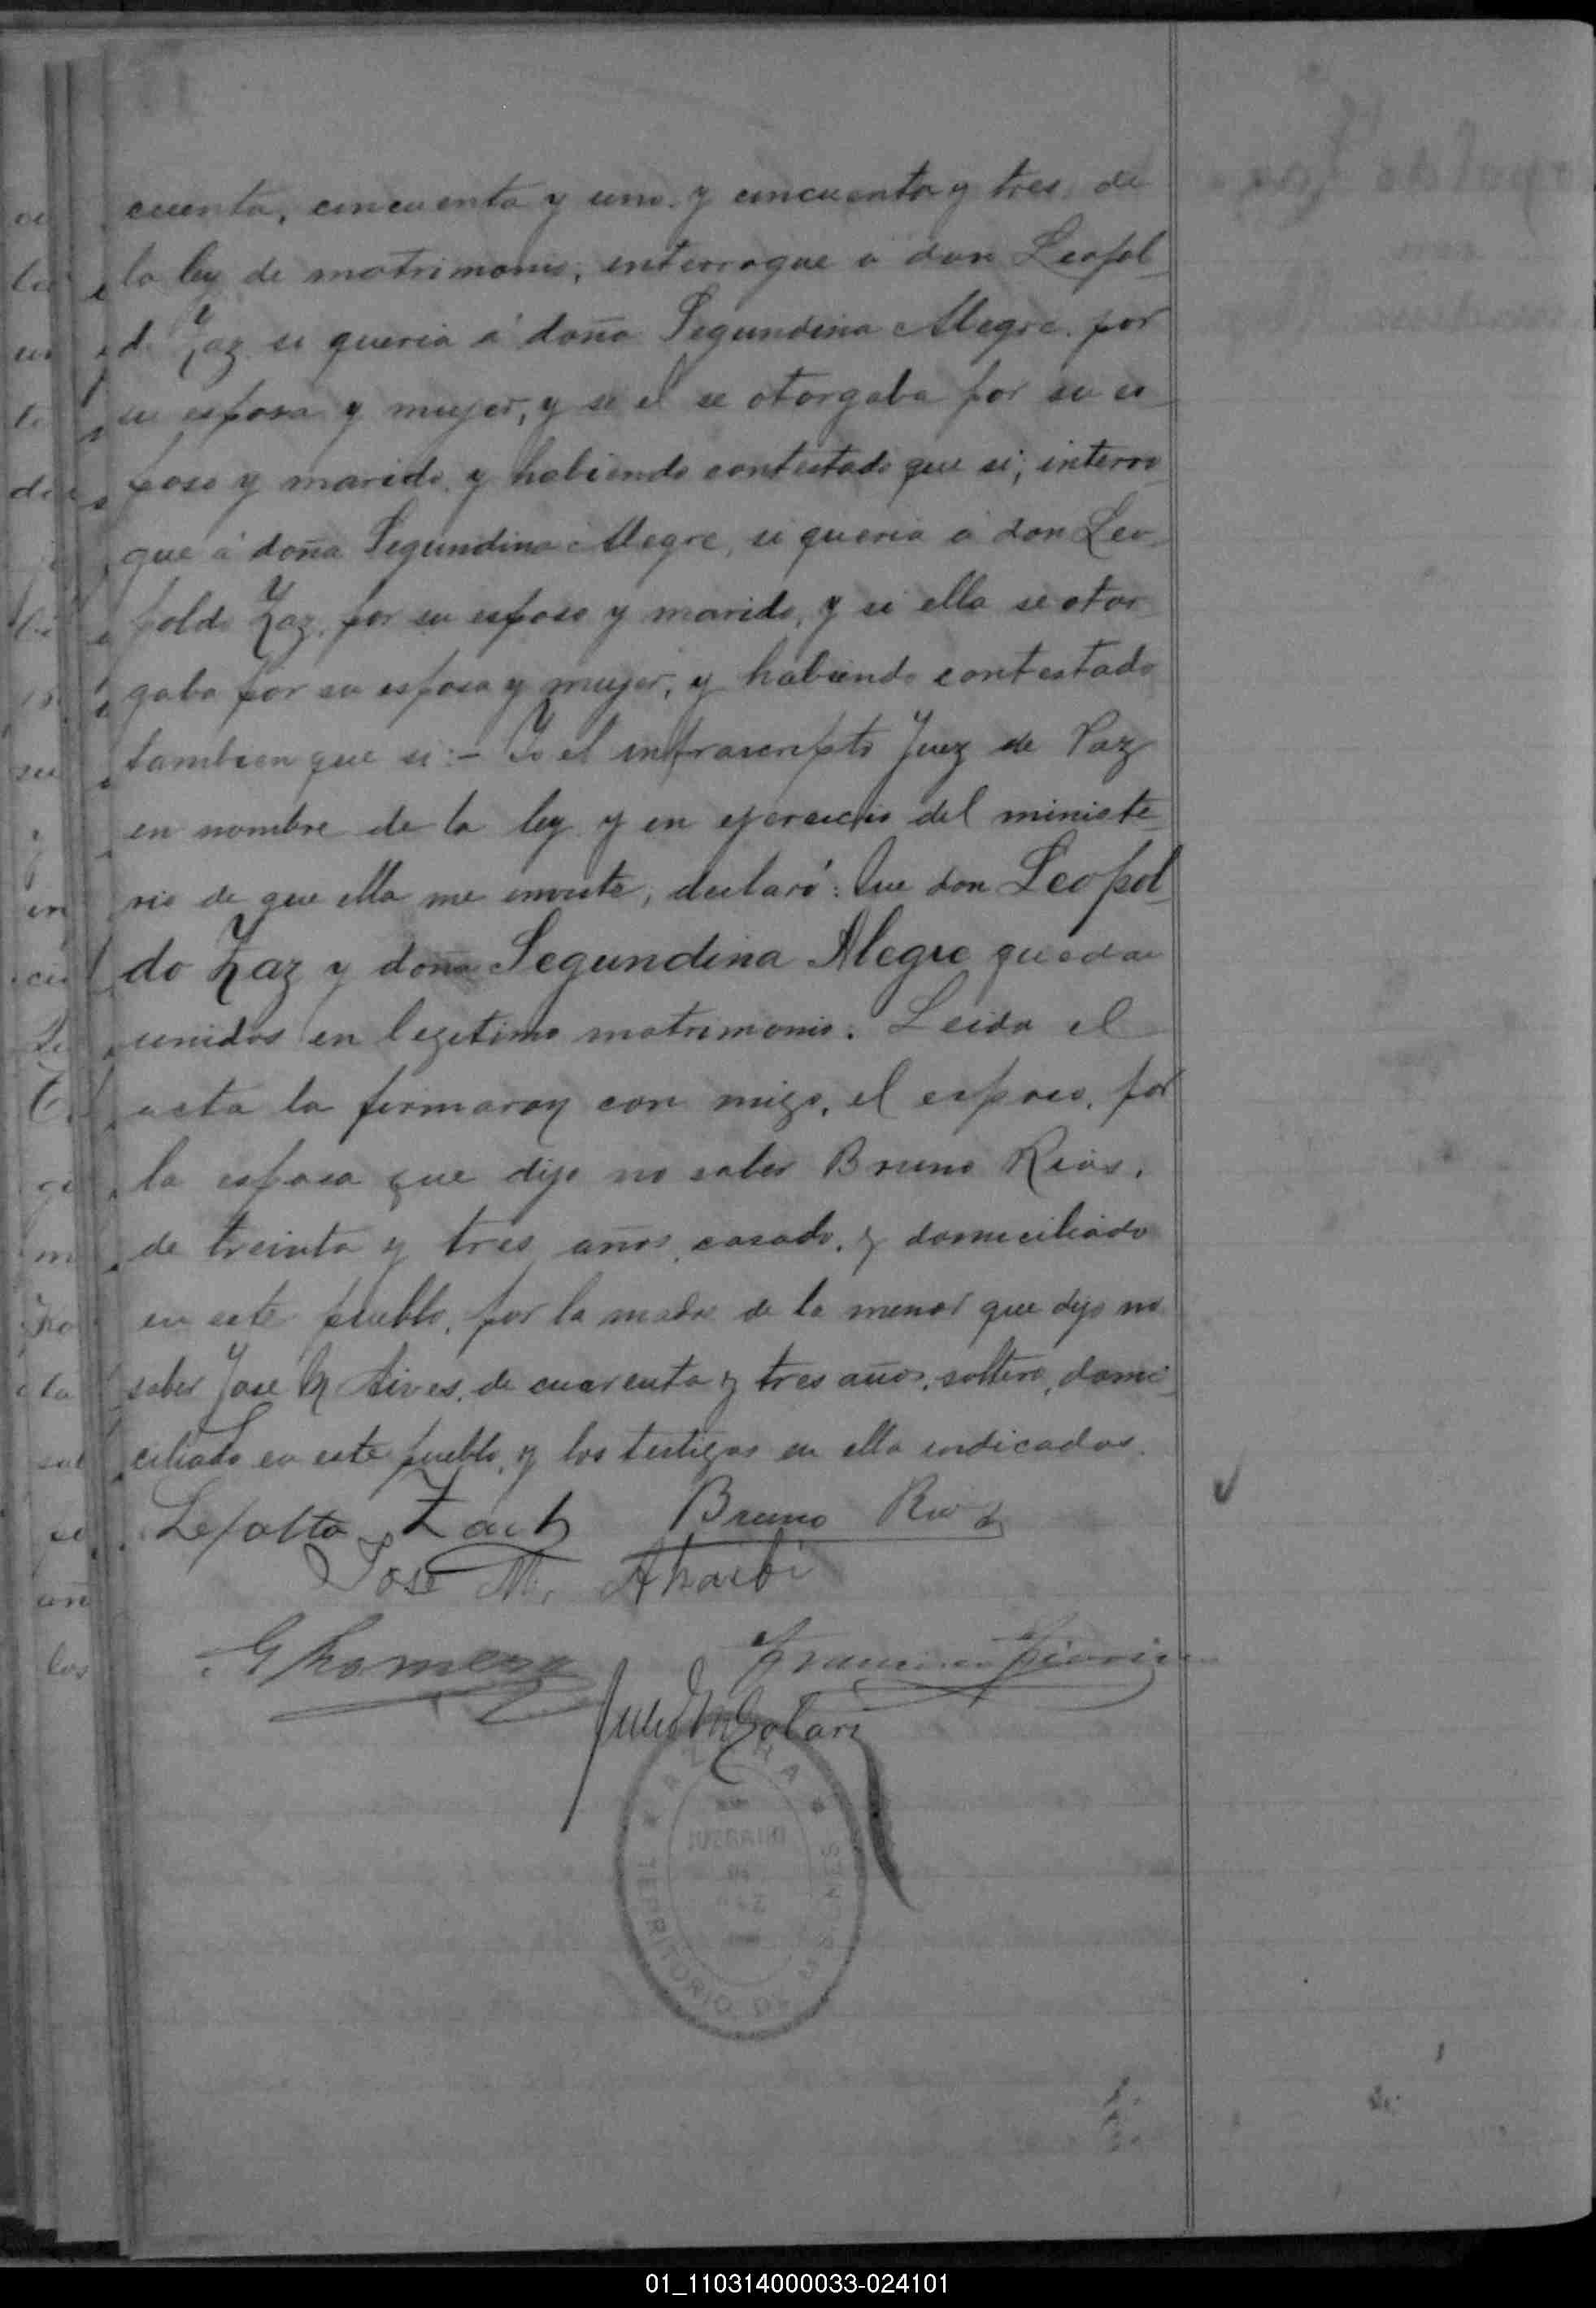 cuenta, cincuenta y uno y cincuenta y tres de
la ley de matrimonio, interrogue a don Leopol
do Zaz si queria á doña Segundina Alegre por
su esposa y mujer, y si el se otorgaba por su es
poso y marido y habiendo contestado que si, interro
gue á doña Segundina Alegre, si queria a don Leo
poldo Zaz por su esposo y marido, y si ella se otor
gaba por su esposa y mujer, y habiendo contestado
tambien que si:- Yo el infrascripto Juez de Paz
en nombre de la ley y en ejercicio del ministe
rio de que ella me inviste, declaró: Que don Leopol
do Zaz y doña Segundina Alegre quedan
unidos en legitimo matrimonio. Leida el
acta la firmaron con migo, el esposo, por
la esposa que dijo no saber Bruno Rios,
de treinta y tres años, casado, y domiciliado
en este pueblo, por la madre de la menor que dijo no
saber Jose M de cuarenta y tres años, soltero, domi
ciliado en este pueblo, y los testigos en ella indicados.
Zach Bruno Rios
Jose M.
Francisco
Julio M Solari
JUZGADO
DE
PAZ
TERRITORIO DE MISIONES
01_110314000033-024101